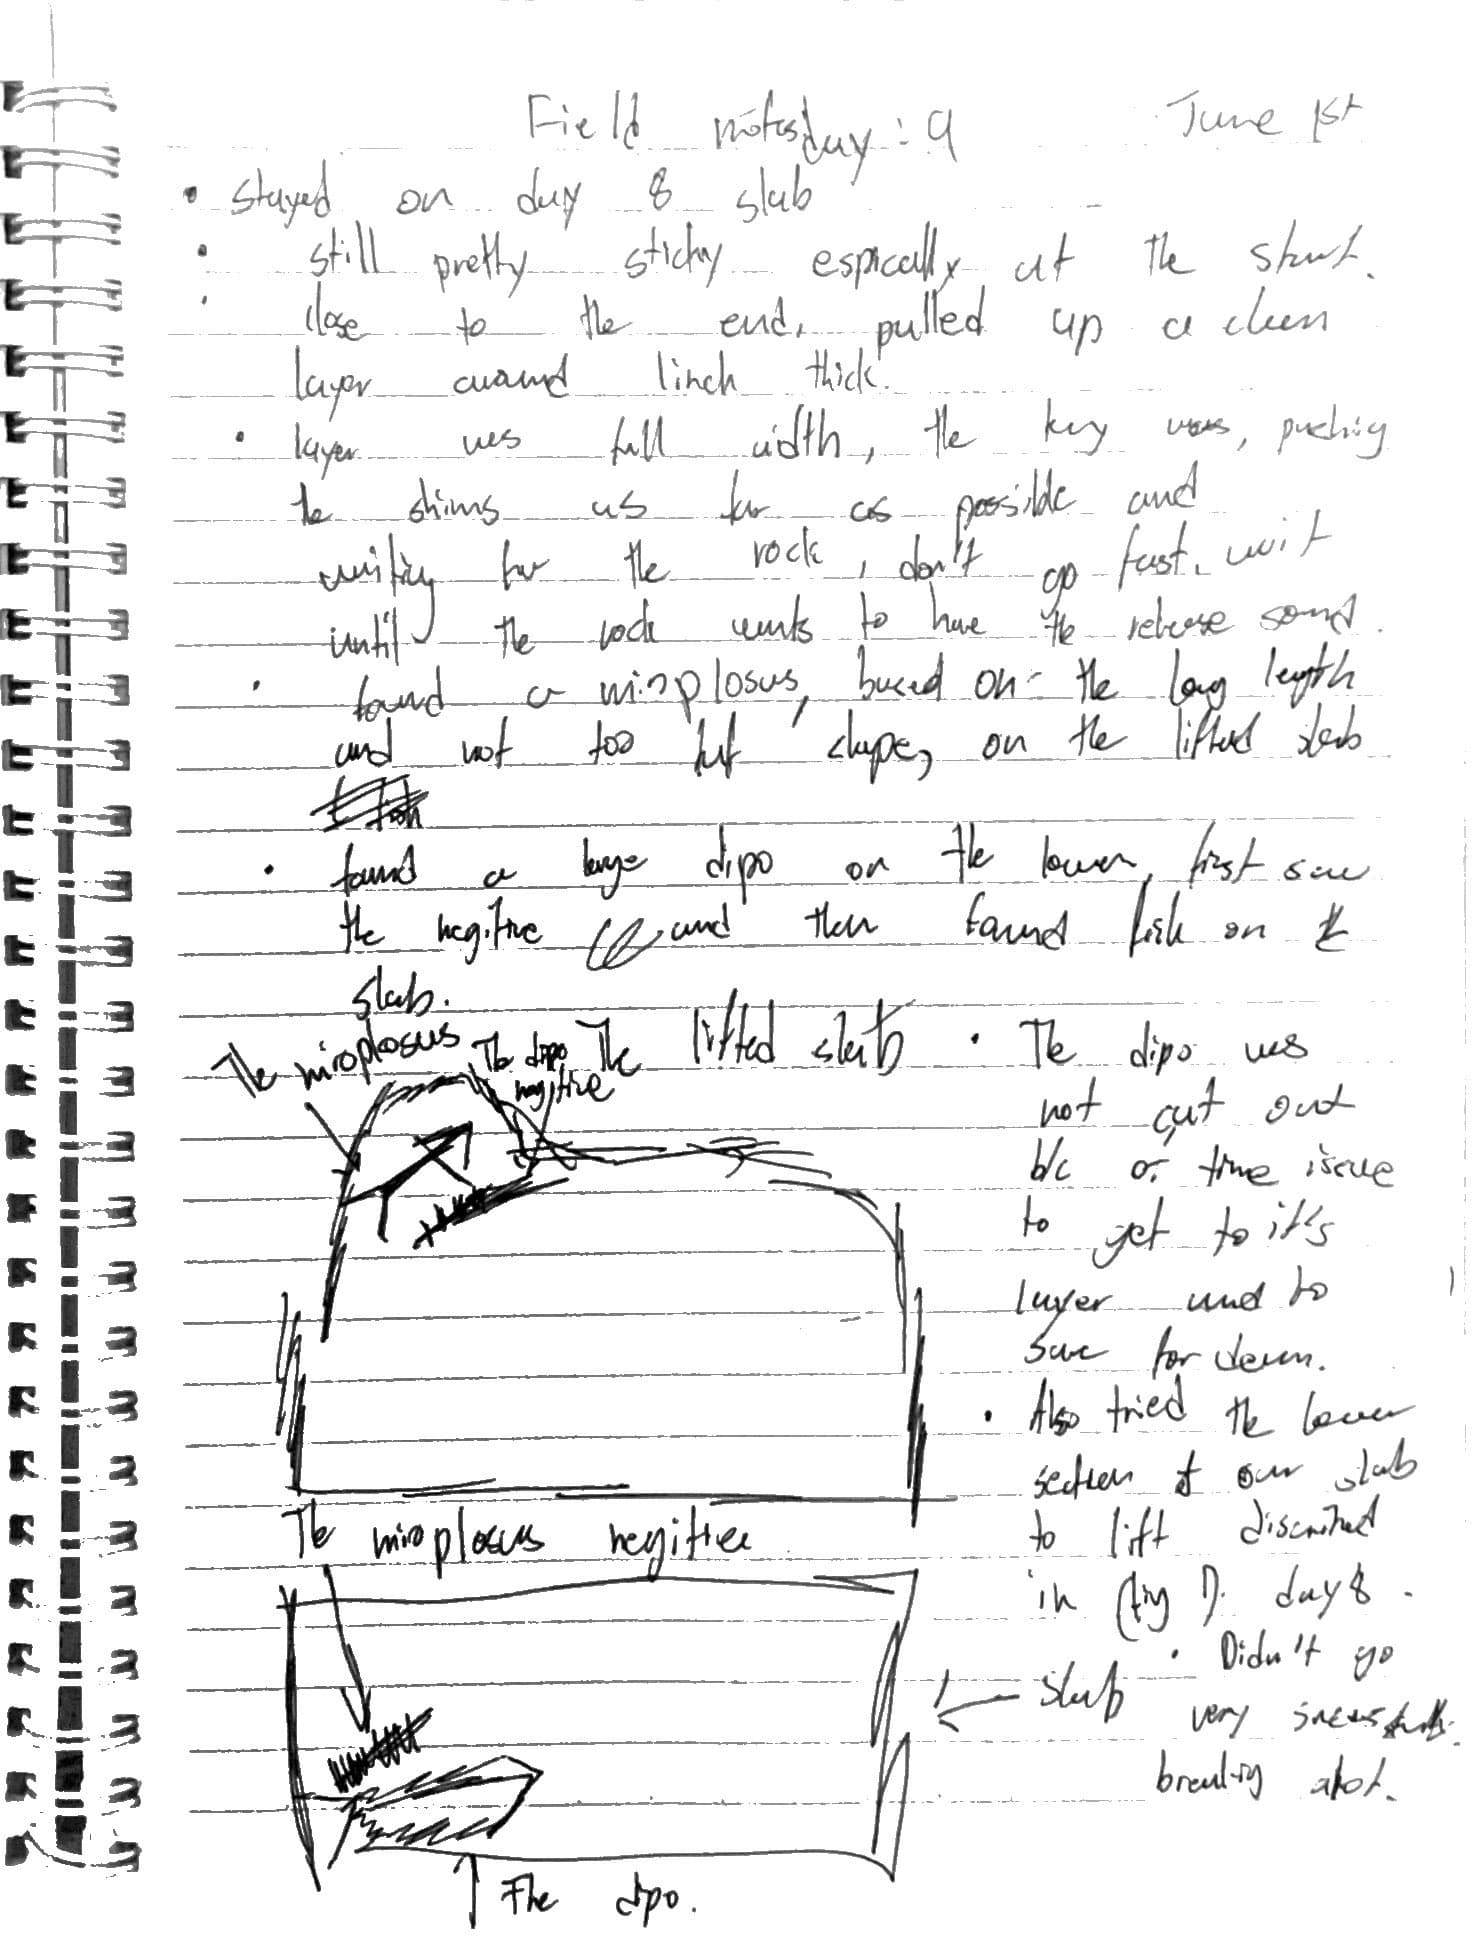 Field notes day: 9
June 1st
• stayed on day 8 slab
• still pretty sticky espically at the start.
• close to the end, pulled up a clean
layer around 1 inch thick.
• layer was full width, the key was, pushing
the shims as far as possible and
waiting for the rock, don't go fast. wait
until the rock wants to have the release sound.
• found a mioplosus, based on the long length
and not too fat shape, on the lifted slab
• found a large dipo on the lower, first saw
the negitive and then found fish on the
slab.
The mioplosus
The dipo
negitive
The lifted slab
• The dipo was
not cut out
b/c of time issue
to get to it's
layer and to
save for
• Also tried the lower
section of our slab
to lift
in (fig 1). day 8.
• Didn't go
very
breaking alot.
The mioplosus negitive
← slab
↑ The dipo.